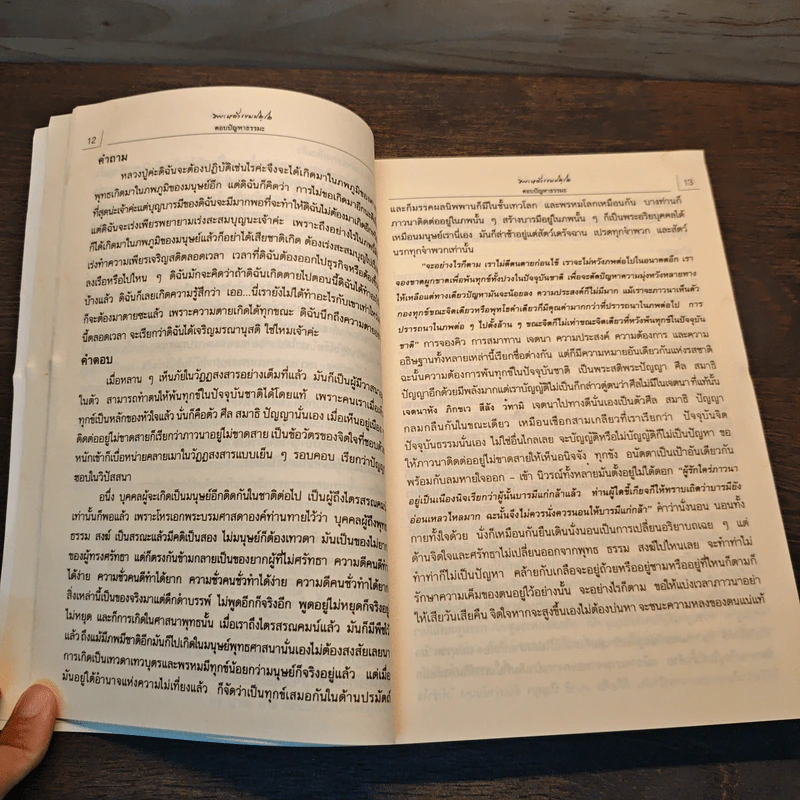 12
ตอบปัญหาธรรมะ
คำถาม
หลวงปู่ค่ะดิฉันจะต้องปฏิบัติเช่นไรค่ะจึงจะได้เกิดมาในภพภูมิของ
พุทธเกิดมาในภพภูมิของมนุษย์อีก แต่ดิฉันก็คิดว่า การไม่ขอเกิดมาอีก
ที่สุดน่ะเจ้าค่ะแต่บุญบารมีของดิฉันจะมีมากพอที่จะทำให้ดิฉันไม่ต้องมาเกิดอีก
แต่ดิฉันจะเร่งเพียรพยายามเร่งสะสมบุญนะเจ้าค่ะ เพราะถึงอย่างไรในภพ
ก็ได้เกิดมาในภพภูมิของมนุษย์แล้วก็อย่าได้เสียชาติเกิด ต้องเร่งสะสมบุญ
เร่งทำความเพียรเจริญสติตลอดเวลา เวลาที่ดิฉันต้องออกไปธุรกิจหรือต้อง
ลงเรือหรือไปไหน ๆ ดิฉันมักจะคิดว่าถ้าดิฉันเกิดตายไปตอนนี้ดิฉันได้ทำอะไร
บ้างแล้ว ดิฉันก็เลยเกิดความรู้สึกว่า เออ...นี่เรายังไม่ได้ทำอะไรกับเขาเท่าไหร่
ก็จะต้องมาตายซะแล้ว เพราะความตายเกิดได้ทุกขณะ ดิฉันนึกถึงความตาย
นี้ตลอดเวลา จะเรียกว่าดิฉันได้เจริญมรณานุสติ ใช่ไหมเจ้าค่ะ
คำตอบ
เมื่อหลาน ๆ เห็นภัยในวัฏฏสงสารอย่างเต็มที่แล้ว มันก็เป็นผู้มีวาสนา
ในตัว สามารถทำตนให้พ้นทุกข์ในปัจจุบันชาติได้โดยแท้ เพราะคนเราเมื่อ
ทุกข์เป็นหลักของหัวใจแล้ว นั่นก็คือตัว ศีล สมาธิ ปัญญานั่นเอง เมื่อเห็นอยู่
ติดต่ออยู่ไม่ขาดสายก็เรียกว่าภาวนาอยู่ไม่ขาดสาย เป็นข้อวัตรของจิตใจที่ชอบ
หนักเข้าก็เบื่อหน่ายคลายเมาในวัฏฏสงสารแบบเย็น ๆ รอบคอบ เรียกว่าปัญญา
ชอบในวิปัสสนา
อนึ่ง บุคคลผู้จะเกิดเป็นมนุษย์อีกติดกันในชาติต่อไป เป็นผู้ถึงไตรสรณคมน์
เท่านั้นก็พอแล้ว เพราะโหรเอกพระบรมศาสดาองค์ท่านทายไว้ว่า บุคคลผู้ถึงพุทธ
ธรรม สงฆ์ เป็นสรณะแล้วมีคติเป็นสอง ไม่มนุษย์ก็ต้องเทวดา มันเป็นของไม่ยาก
ของผู้ทรงศรัทธา แต่ตรงกันข้ามกลายเป็นของยากผู้ที่ไม่ศรัทธา ความดีคนดีทำ
ได้ง่าย ความชั่วคนดีทำได้ยาก ความชั่วคนชั่วทำได้ง่าย ความดีคนชั่วทำได้ยาก
สิ่งเหล่านี้เป็นของจริงมาแต่ดึกดำบรรพ์ ไม่พูดอีกก็จริงอีก พูดอยู่ไม่หยุดก็จริงอยู่
ไม่หยุด และก็การเกิดในศาสนาพุทธนั้น เมื่อเราถึงไตรสรณคมน์แล้ว มันก็มีพืช
แล้ว ถึงแม้มีภพมีชาติอีกมันก็ไปเกิดในมนุษย์พุทธศาสนานั่นเองไม่ต้องสงสัยเลย
การเกิดเป็นเทวดาเทวบุตรและพรหมมีทุกข์น้อยกว่ามนุษย์ก็จริงอยู่แล้ว แต่เมื่อ
มันอยู่ใต้อำนาจแห่งความไม่เที่ยงแล้ว ก็จัดว่าเป็นทุกข์เสมอกันในด้านปรมัตถ์
13
ตอบปัญหาธรรมะ
และก็มรรคผลนิพพานก็มีในชั้นเทวโลก และพรหมโลกเหมือนกัน บางท่านก็
ภาวนาติดต่ออยู่ในภพนั้น ๆ สร้างบารมีอยู่ในภพนั้น ๆ ก็เป็นพระอริยบุคคลได้
เหมือนมนุษย์เรานี่เอง มันก็ล่าช้าอยู่แต่สัตว์เดรัจฉาน เปรตทุกจำพวก และสัตว์
นรกทุกจำพวกเท่านั้น
"จะอย่างไรก็ตาม เราไม่ติดตนตายก่อนไข้ เราจะไม่หวังภพต่อไปในอนาคตอีก เรา
จองขาดผูกขาดเพื่อพ้นทุกข์ทั้งปวงในปัจจุบันชาติ เพื่อจะตัดปัญหาความมุ่งหวังหลายทาง
ให้เหลือแต่ทางเดียวปัญหามันจะน้อยลง ความประสงค์ก็ไม่มีมาก แม้เราจะภาวนาเห็นตัว
กองทุกข์ขณะจิตเดียวหรือพุทโธคำเดียวก็มีคุณค่ามากกว่าที่ปรารถนาในภพต่อไป การ
ปรารถนาในภพต่อ ๆ ไปตั้งล้าน ๆ ขณะจิตก็ไม่เท่าขณะจิตเดียวที่หวังพ้นทุกข์ในปัจจุบัน
ชาติ" การจองคิว การสมาทาน เจตนา ความประสงค์ ความต้องการ และความ
อธิษฐานทั้งหลายเหล่านี้เรียกชื่อต่างกัน แต่ก็มีความหมายอันเดียวกันแห่งรสชาติ
ฉะนั้นความต้องการพ้นทุกข์ในปัจจุบันชาติ เป็นพระสติพระปัญญา ศีล สมาธิ
ปัญญาอีกด้วยมีพลังมากแต่เราบัญญัติไม่เป็นก็กล่าวตู่ตนว่าศีลไม่มีในเจตนาที่แท้นั้น
เจตนาหัง ภิกขเว สีลัง วทามิ เจตนาไปทางดีนั่นเองเป็นตัวศีล สมาธิ ปัญญา
กลมกลืนกันในขณะเดียว เหมือนเชือกสามเกลียวที่เราเรียกว่า ปัจจุบันจิต
ปัจจุบันธรรมนั่นเอง ไม่ใช่อื่นไกลเลย จะบัญญัติหรือไม่บัญญัติก็ไม่เป็นปัญหา ขอ
ให้ภาวนาติดต่ออยู่ไม่ขาดสายให้เห็นอนิจจัง ทุกขัง อนัตตาเป็นเป้าอันเดียวกัน
พร้อมกับลมหายใจออก - เข้า นิวรณ์ทั้งหลายมันตั้งอยู่ไม่ได้ดอก "ผู้รักใคร่ภาวนา
อยู่เป็นเนืองนิจเรียกว่าผู้นั้นบารมีแก่กล้าแล้ว ท่านผู้ใดขี้เกียจก็ให้ทราบเถิดว่าบารมียัง
อ่อนเหลวไหลมาก ฉะนั้นจึงไม่ควรนั่งควรนอนให้บารมีแก่กล้า" คำว่านั่งนอน นอนทั้ง
กายทั้งใจด้วย นั่งก็เหมือนกันยืนเดินนั่งนอนเป็นการเปลี่ยนอริยาบถเฉย ๆ แต่
ด้านจิตใจและศรัทธาไม่เปลี่ยนออกจากพุทธ ธรรม สงฆ์ไปไหนเลย จะทำท่าไม่
ทำท่าก็ไม่เป็นปัญหา คล้ายกับเกลือจะอยู่ถ้วยหรืออยู่ชามหรืออยู่ที่ไหนก็ตามก็
รักษาความเค็มของตนอยู่ไว้อย่างนั้น จะอย่างไรก็ตาม ขอให้แบ่งเวลาภาวนาอย่า
ให้เสียวันเสียคืน จิตใจหากจะสูงขึ้นเองไม่ต้องบ่นหา จะชนะความหลงของตนแน่แท้